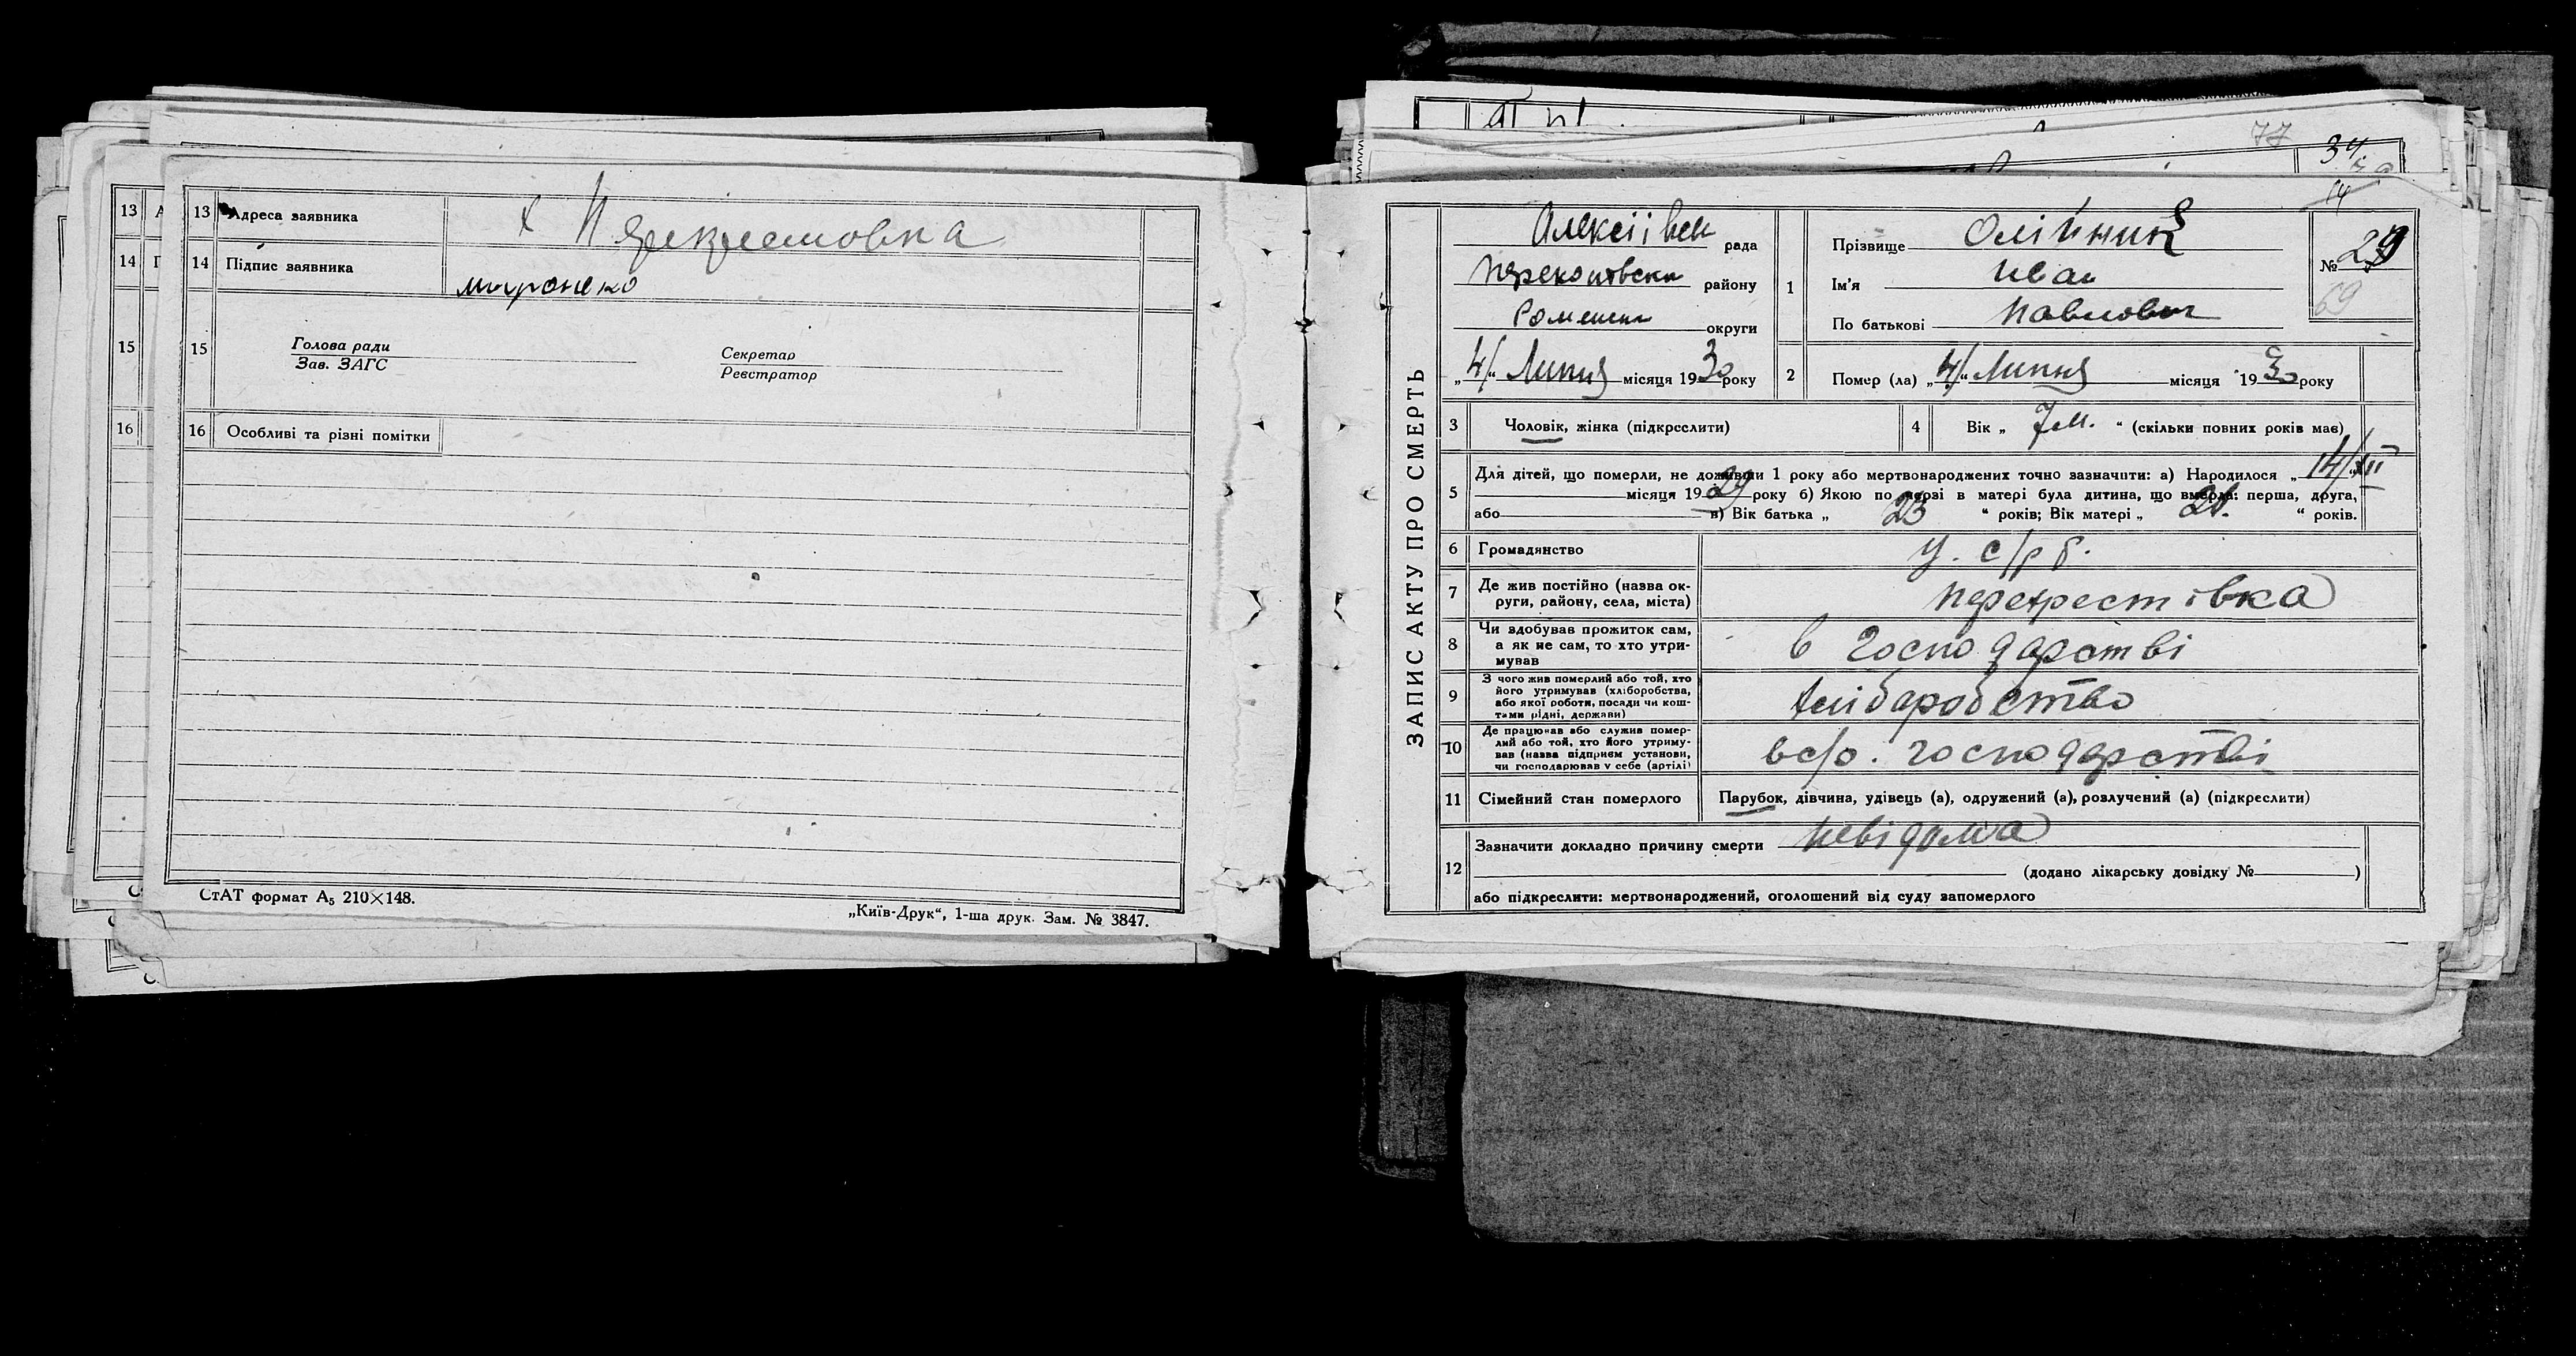 13 Адреса заявника х Перекрестовка
14 Підпис заявника мироненко
15 Голова ради
Зав. ЗАГС
Секретар
Реєстратор
16 Особливі та різні помітки
СтАТ формат А₅ 210×148.
„Київ-Друк“, 1-ша друк. Зам. № 3847.
77
34
ЗАПИС АКТУ ПРО СМЕРТЬ
Алексіївск рада
району
Роменск округи
„4/“ Липня місяця 1930 року
1 Прізвище Олійник
Ім'я Иван
По батькові Павлович
№ 29
69
2 Помер (ла) „4/“ Липня місяця 1930 року
3 Чоловік, жінка (підкреслити)
4 Вік „ 7 м. “ (скільки повних років має)
5 Для дітей, що померли, не доживши 1 року або мертвонароджених точно зазначити: а) Народилося „14/XII
місяця 1929 року б) Якою по черзі в матері була дитина, що вмерла: перша, друга,
або в) Вік батька „ 23 “ років; Вік матері „ 21. “ років.
6 Громадянство У. с/р р.
7 Де жив постійно (назва ок-
руги, району, села, міста) перехрестівка
8 Чи здобував прожиток сам,
а як не сам, то хто утри-
мував в господарстві
9 З чого жив померлий або той, хто
його утримував (хліборобства,
або якої роботи, посади чи кош-
тами рідні, держави) хліборобство
10 Де працював або служив помер-
лий або той, хто його утриму-
вав (назва підприєм установи,
чи господарював у себе (артілі) в с/о. господарстві
11 Сімейний стан померлого Парубок, дівчина, удівець (а), одружений (а), розлучений (а) (підкреслити)
12 Зазначити докладно причину смерти невідома
(додано лікарську довідку № )
або підкреслити: мертвонароджений, оголошений від суду запомерлого